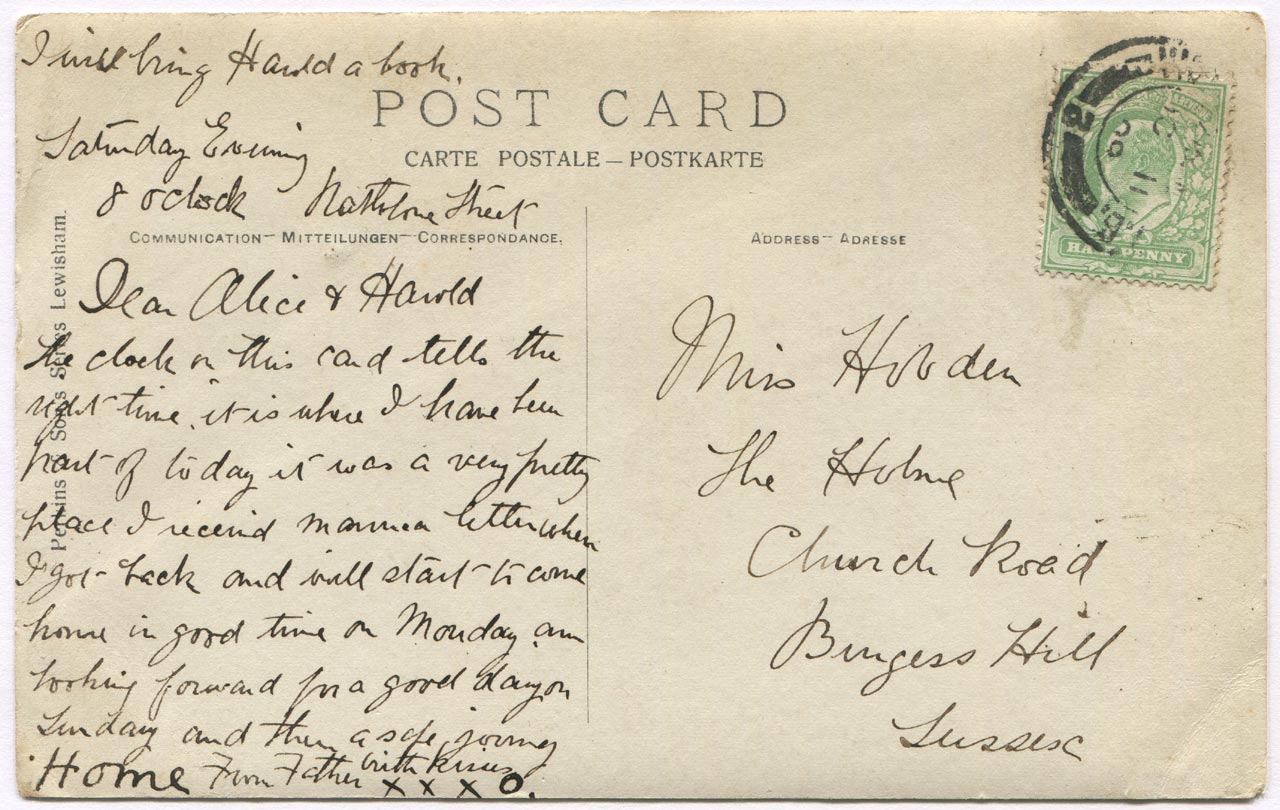 I will bring Harold a book.
POST CARD
CARTE POSTALE – POSTKARTE
Saturday Evening
8 oclock Street
COMMUNICATION – MITTEILUNGEN – CORRESPONDANCE.
Dear Alice & Harold
the clock on this card tells the
right time, it is where I have been
part of today it was a very pretty
place I receivd mamma letter when
I got back and will start to come
home in good time on Monday am
looking forward for a good day on
Sunday and then a safe journey
Home From Father with kisses
x x x o.
Perkins Sons Series Lewisham.
ADDRESS – ADRESSE
Miss Hobden
The Holme
Church Road
Burgess Hill
Sussex
HALFPENNY
2
11